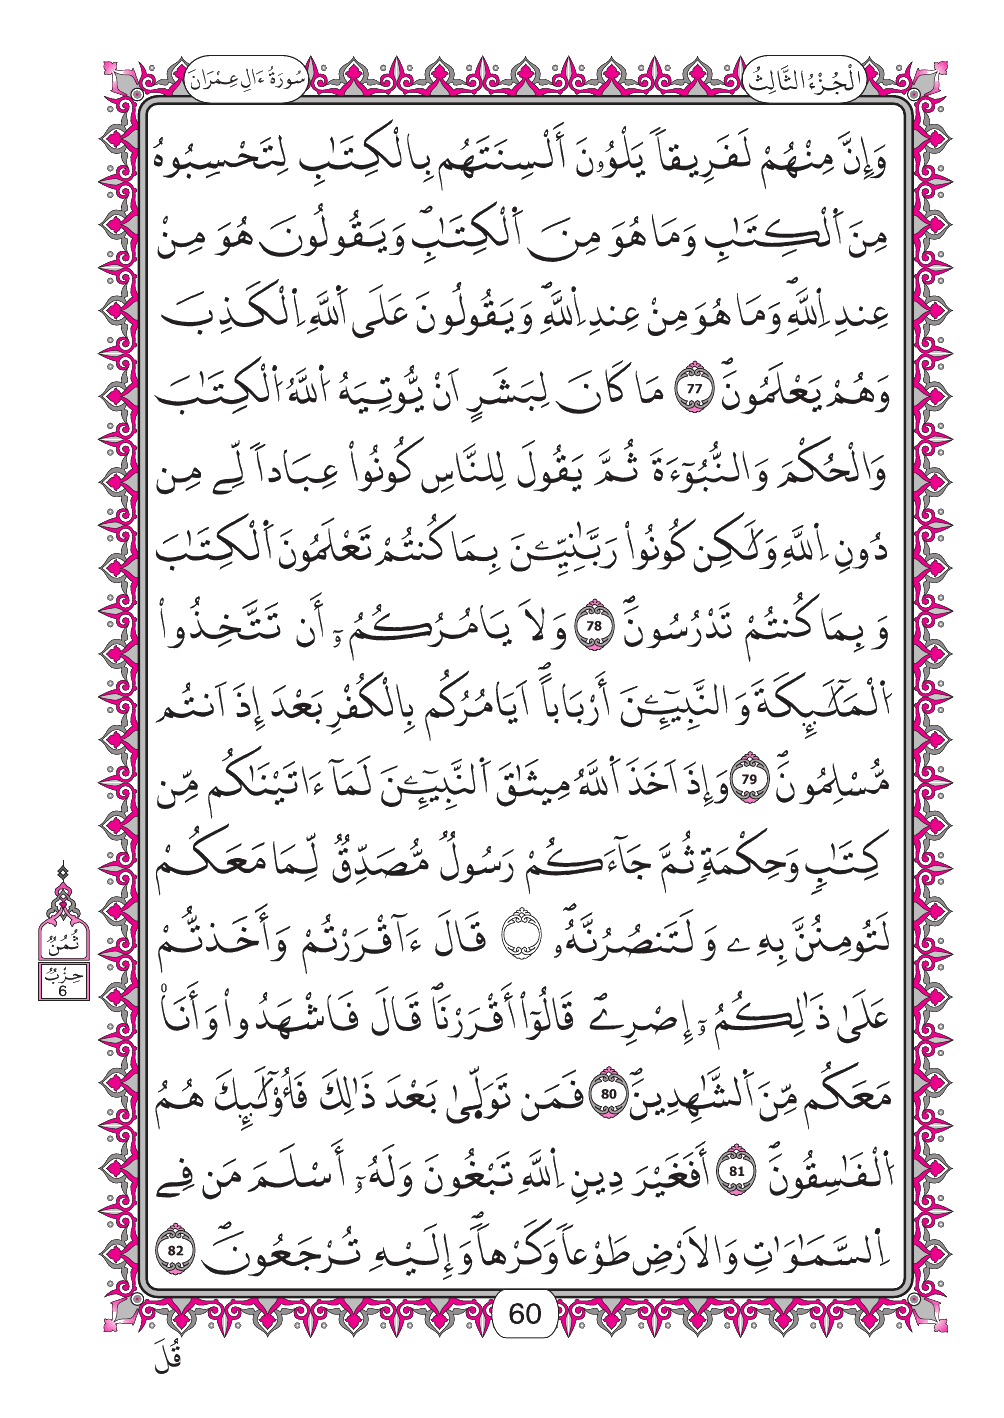 الْجُزْءُ الثَّالِثُ
سُورَةُ ءَالِ عِمْرَانَ
وَإِنَّ مِنْهُمْ لَفَرِيقاً يَلْوُۥنَ أَلْسِنَتَهُم بِالْكِتَٰبِ لِتَحْسِبُوهُ
مِنَ اَ۬لْكِتَٰبِ وَمَا هُوَ مِنَ اَ۬لْكِتَٰبِۖ وَيَقُولُونَ هُوَ مِنْ
عِندِ اِ۬للَّهِۖ وَمَا هُوَ مِنْ عِندِ اِ۬للَّهِۖ وَيَقُولُونَ عَلَى اَ۬للَّهِ اِ۬لْكَذِبَ
وَهُمْ يَعْلَمُونَۖ 77 مَا كَانَ لِبَشَرٍ اَنْ يُّوتِيَهُ اُ۬للَّهُ اُ۬لْكِتَٰبَ
وَالْحُكْمَ وَالنُّبُوٓءَةَ ثُمَّ يَقُولَ لِلنَّاسِ كُونُواْ عِبَاداً لِّے مِن
دُونِ اِ۬للَّهِ وَلَٰكِن كُونُواْ رَبَّٰنِيِّـۧنَ بِمَا كُنتُمْ تَعْلَمُونَ اَ۬لْكِتَٰبَ
وَبِمَا كُنتُمْ تَدْرُسُونَۖ 78 وَلَا يَامُرُكُمُۥٓ أَن تَتَّخِذُواْ
اُ۬لْمَلَٰٓئِكَةَ وَالنَّبِيٓـِٕـۧنَ أَرْبَاباًۖ اَيَامُرُكُم بِالْكُفْرِ بَعْدَ إِذَ اَنتُم
مُّسْلِمُونَۖ 79 وَإِذَ اَخَذَ اَ۬للَّهُ مِيثَٰقَ اَ۬لنَّبِيٓـِٕـۧنَ لَمَآ ءَاتَيْنَٰكُم مِّن
كِتَٰبٍ وَحِكْمَةٍ ثُمَّ جَآءَكُمْ رَسُولٌ مُّصَدِّقٌ لِّمَا مَعَكُمْ
لَتُومِنُنَّ بِهِۦ وَلَتَنصُرُنَّهُۥۖ قَالَ ءَآقْرَرْتُمْ وَأَخَذتُّمْ
عَلَىٰ ذَٰلِكُمُۥٓ إِصْرِےۖ قَالُوٓاْ أَقْرَرْنَاۖ قَالَ فَاشْهَدُواْ وَأَنَا۠
مَعَكُم مِّنَ اَ۬لشَّٰهِدِينَۖ 80 فَمَن تَوَلّ۪ىٰ بَعْدَ ذَٰلِكَ فَأُوْلَٰٓئِكَ هُمُ
اُ۬لْفَٰسِقُونَۖ 81 أَفَغَيْرَ دِينِ اِ۬للَّهِ تَبْغُونَ وَلَهُۥٓ أَسْلَمَ مَن فِے
اِ۬لسَّمَٰوَٰتِ وَالَارْضِ طَوْعاً وَكَرْهاًۖ وَإِلَيْهِ تُرْجَعُونَۖ 82
ثُمُنٌ
حِزْبٌ
6
60
قُلَ